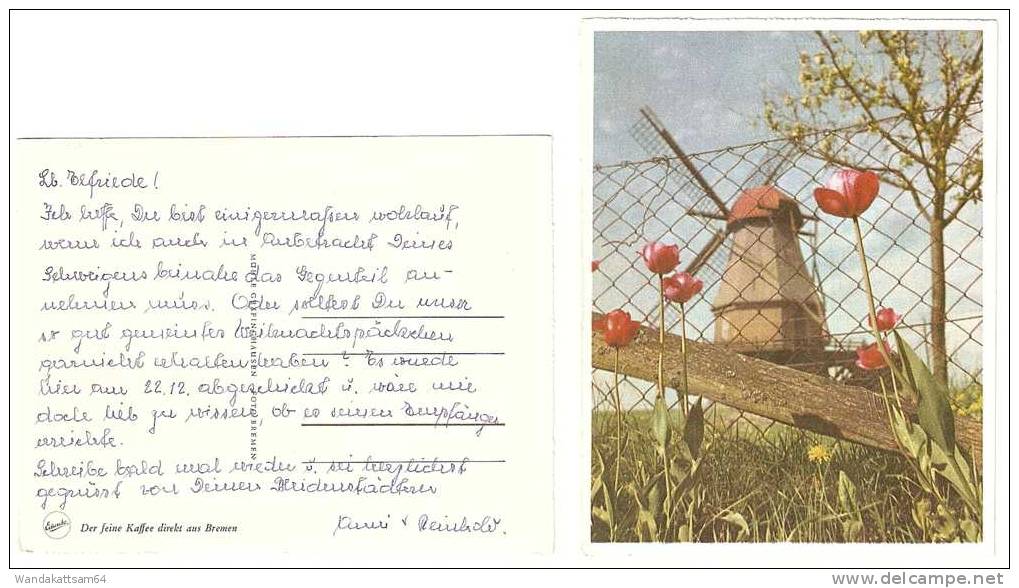 Lb. Elfriede!
Ich hoffe, Du bist einigermaßen wohlauf,
wenn ich auch in Anbetracht Deines
Schweigens beinahe das Gegenteil an-
nehmen muss. Oder solltest Du unser
so gut gemeintes Weihnachtspäckchen
garnicht erhalten haben? Es wurde
hier am 22.12. abgeschickt u. wäre mir
doch lieb zu wissen, ob es seinen Empfänger
erreichte.
Schreibe bald mal wieder u. sei herzlichst
gegrüsst von Deinen Heidenstädtern
+ Reinhold.
Der feine Kaffee direkt aus Bremen
Wandakattsam64
www.delcampe.net